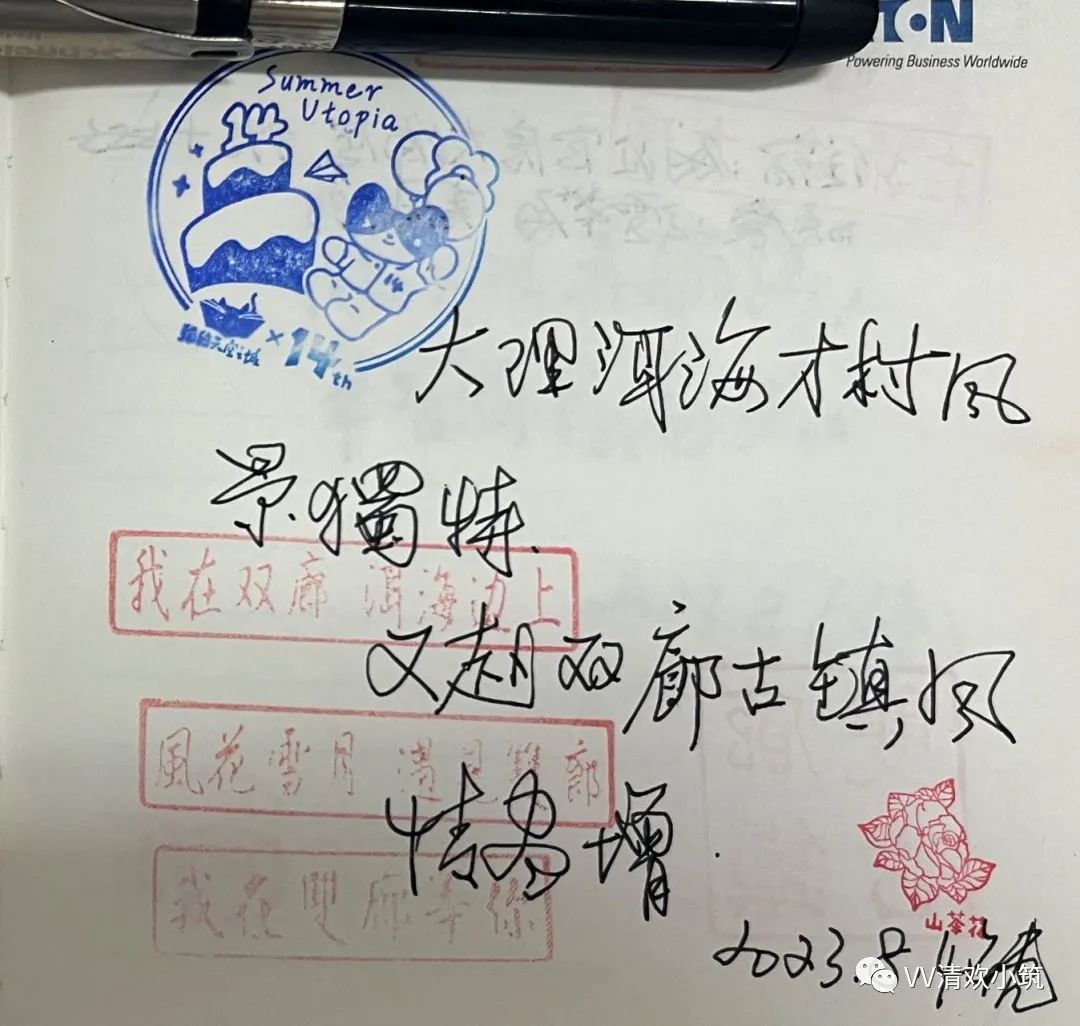 TON
Powering Business Worldwide
Summer
Utopia
14
14
猫的天空之城×14th
大理洱海才村风
景.獨特.
我在双廊 洱海边上
又赴双廊古镇风
風花雪月 遇见雙廊
情 增.
我在雙廊等你
山茶花
2023.8
VV清欢小筑